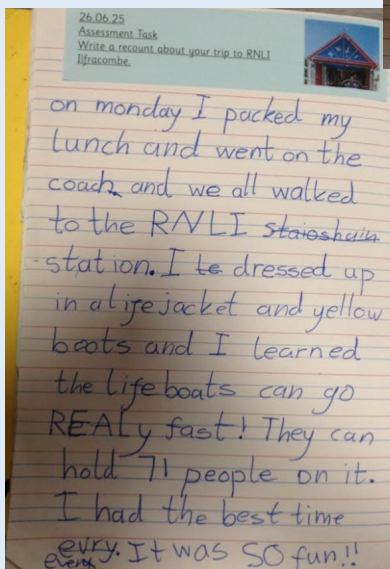 26.06.25
Assessment Task
Write a recount about your trip to RNLI
Ilfracombe.
on monday I packed my
lunch and went on the
coach. and we all walked
to the RNLI staioshain
station. I le dressed up
in a life jacket and yellow
boots and I learned
the lifeboats can go
REALy fast! They can
hold 71 people on it.
I had the best time
evry. It was SO fun!!
every